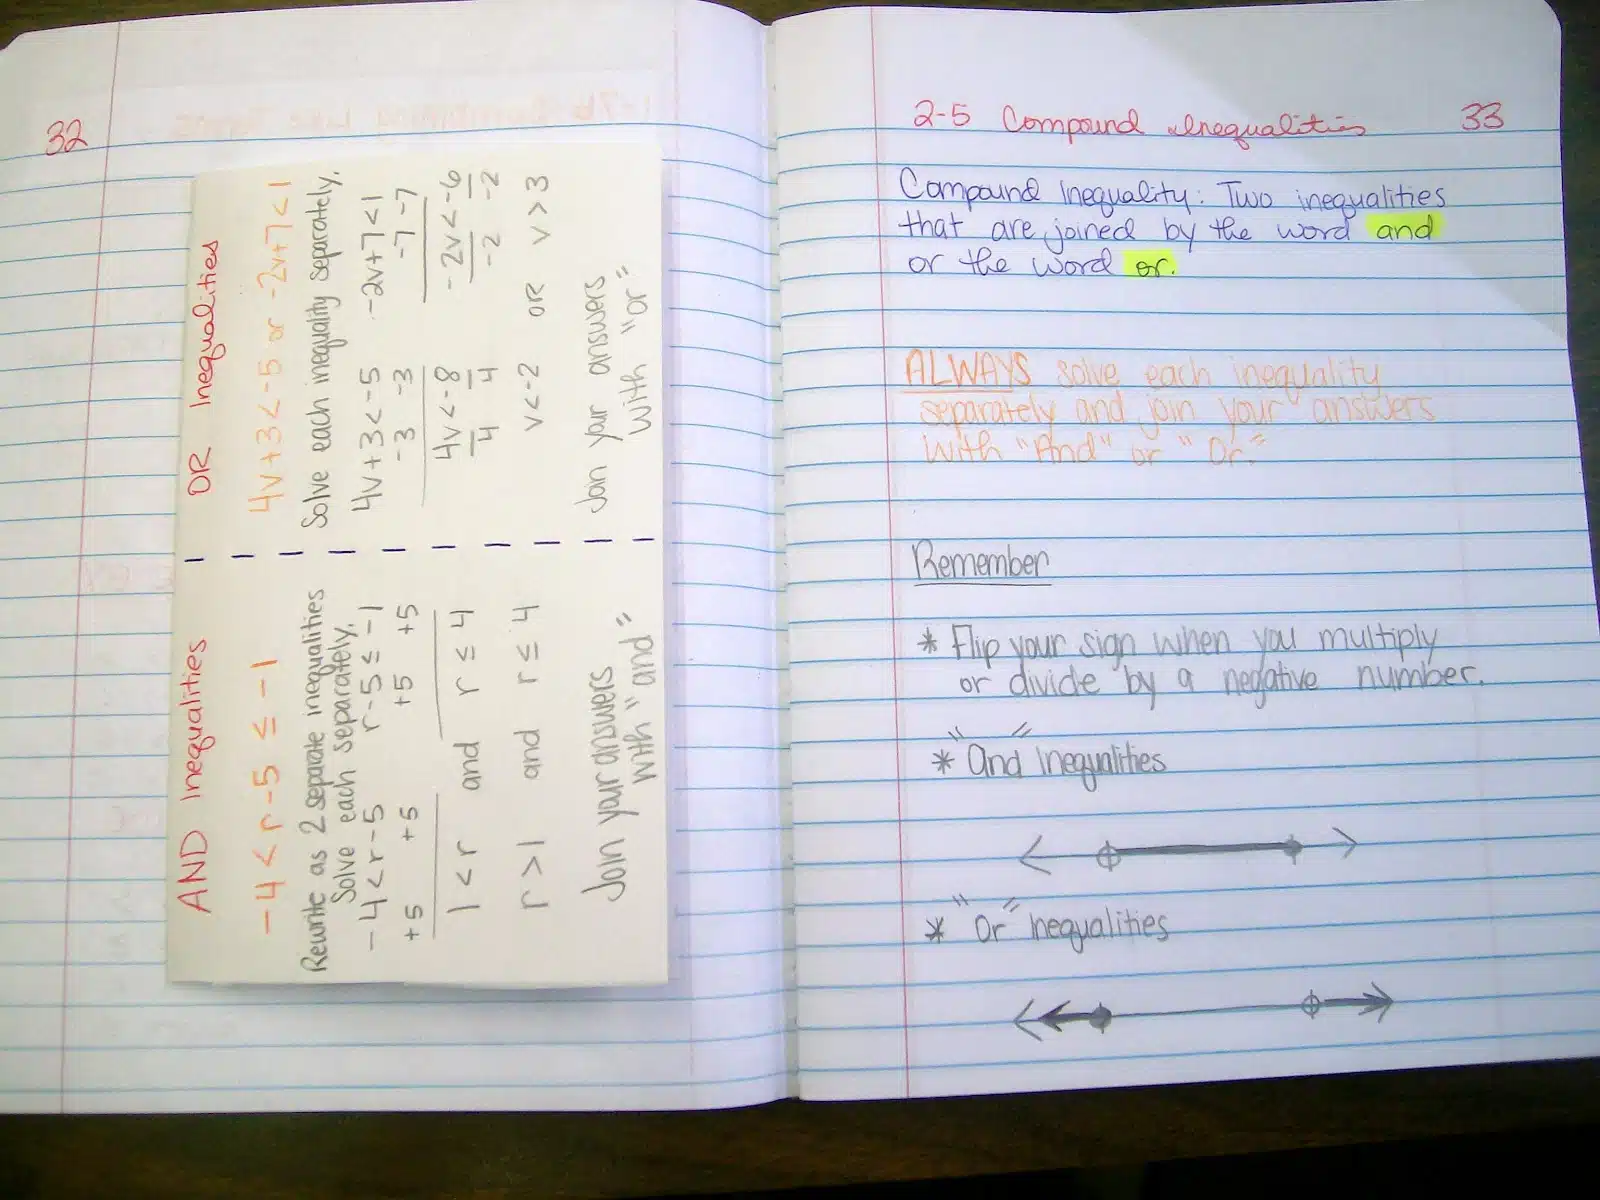 32
AND Inequalities
-4 < r-5 ≤ -1
Rewrite as 2 separate inequalities
Solve each separately.
-4 < r-5 r-5 ≤ -1
+5 +5 +5 +5
1 < r and r ≤ 4
r > 1 and r ≤ 4
Join your answers
with "and"
OR Inequalities
4v+3 < -5 or -2v+7 < 1
Solve each inequality separately.
4v+3 < -5 -2v+7 < 1
-3 -3 -7 -7
4v < -8 -2v < -6
4 4 -2 -2
v < -2 OR v > 3
Join your answers
with "or"
2-5 Compound Inequalities 33
Compound Inequality: Two inequalities
that are joined by the word and
or the word or.
ALWAYS solve each inequality
separately and join your answers
with "And" or "Or."
Remember
* Flip your sign when you multiply
or divide by a negative number.
* "And" Inequalities
* "Or" Inequalities